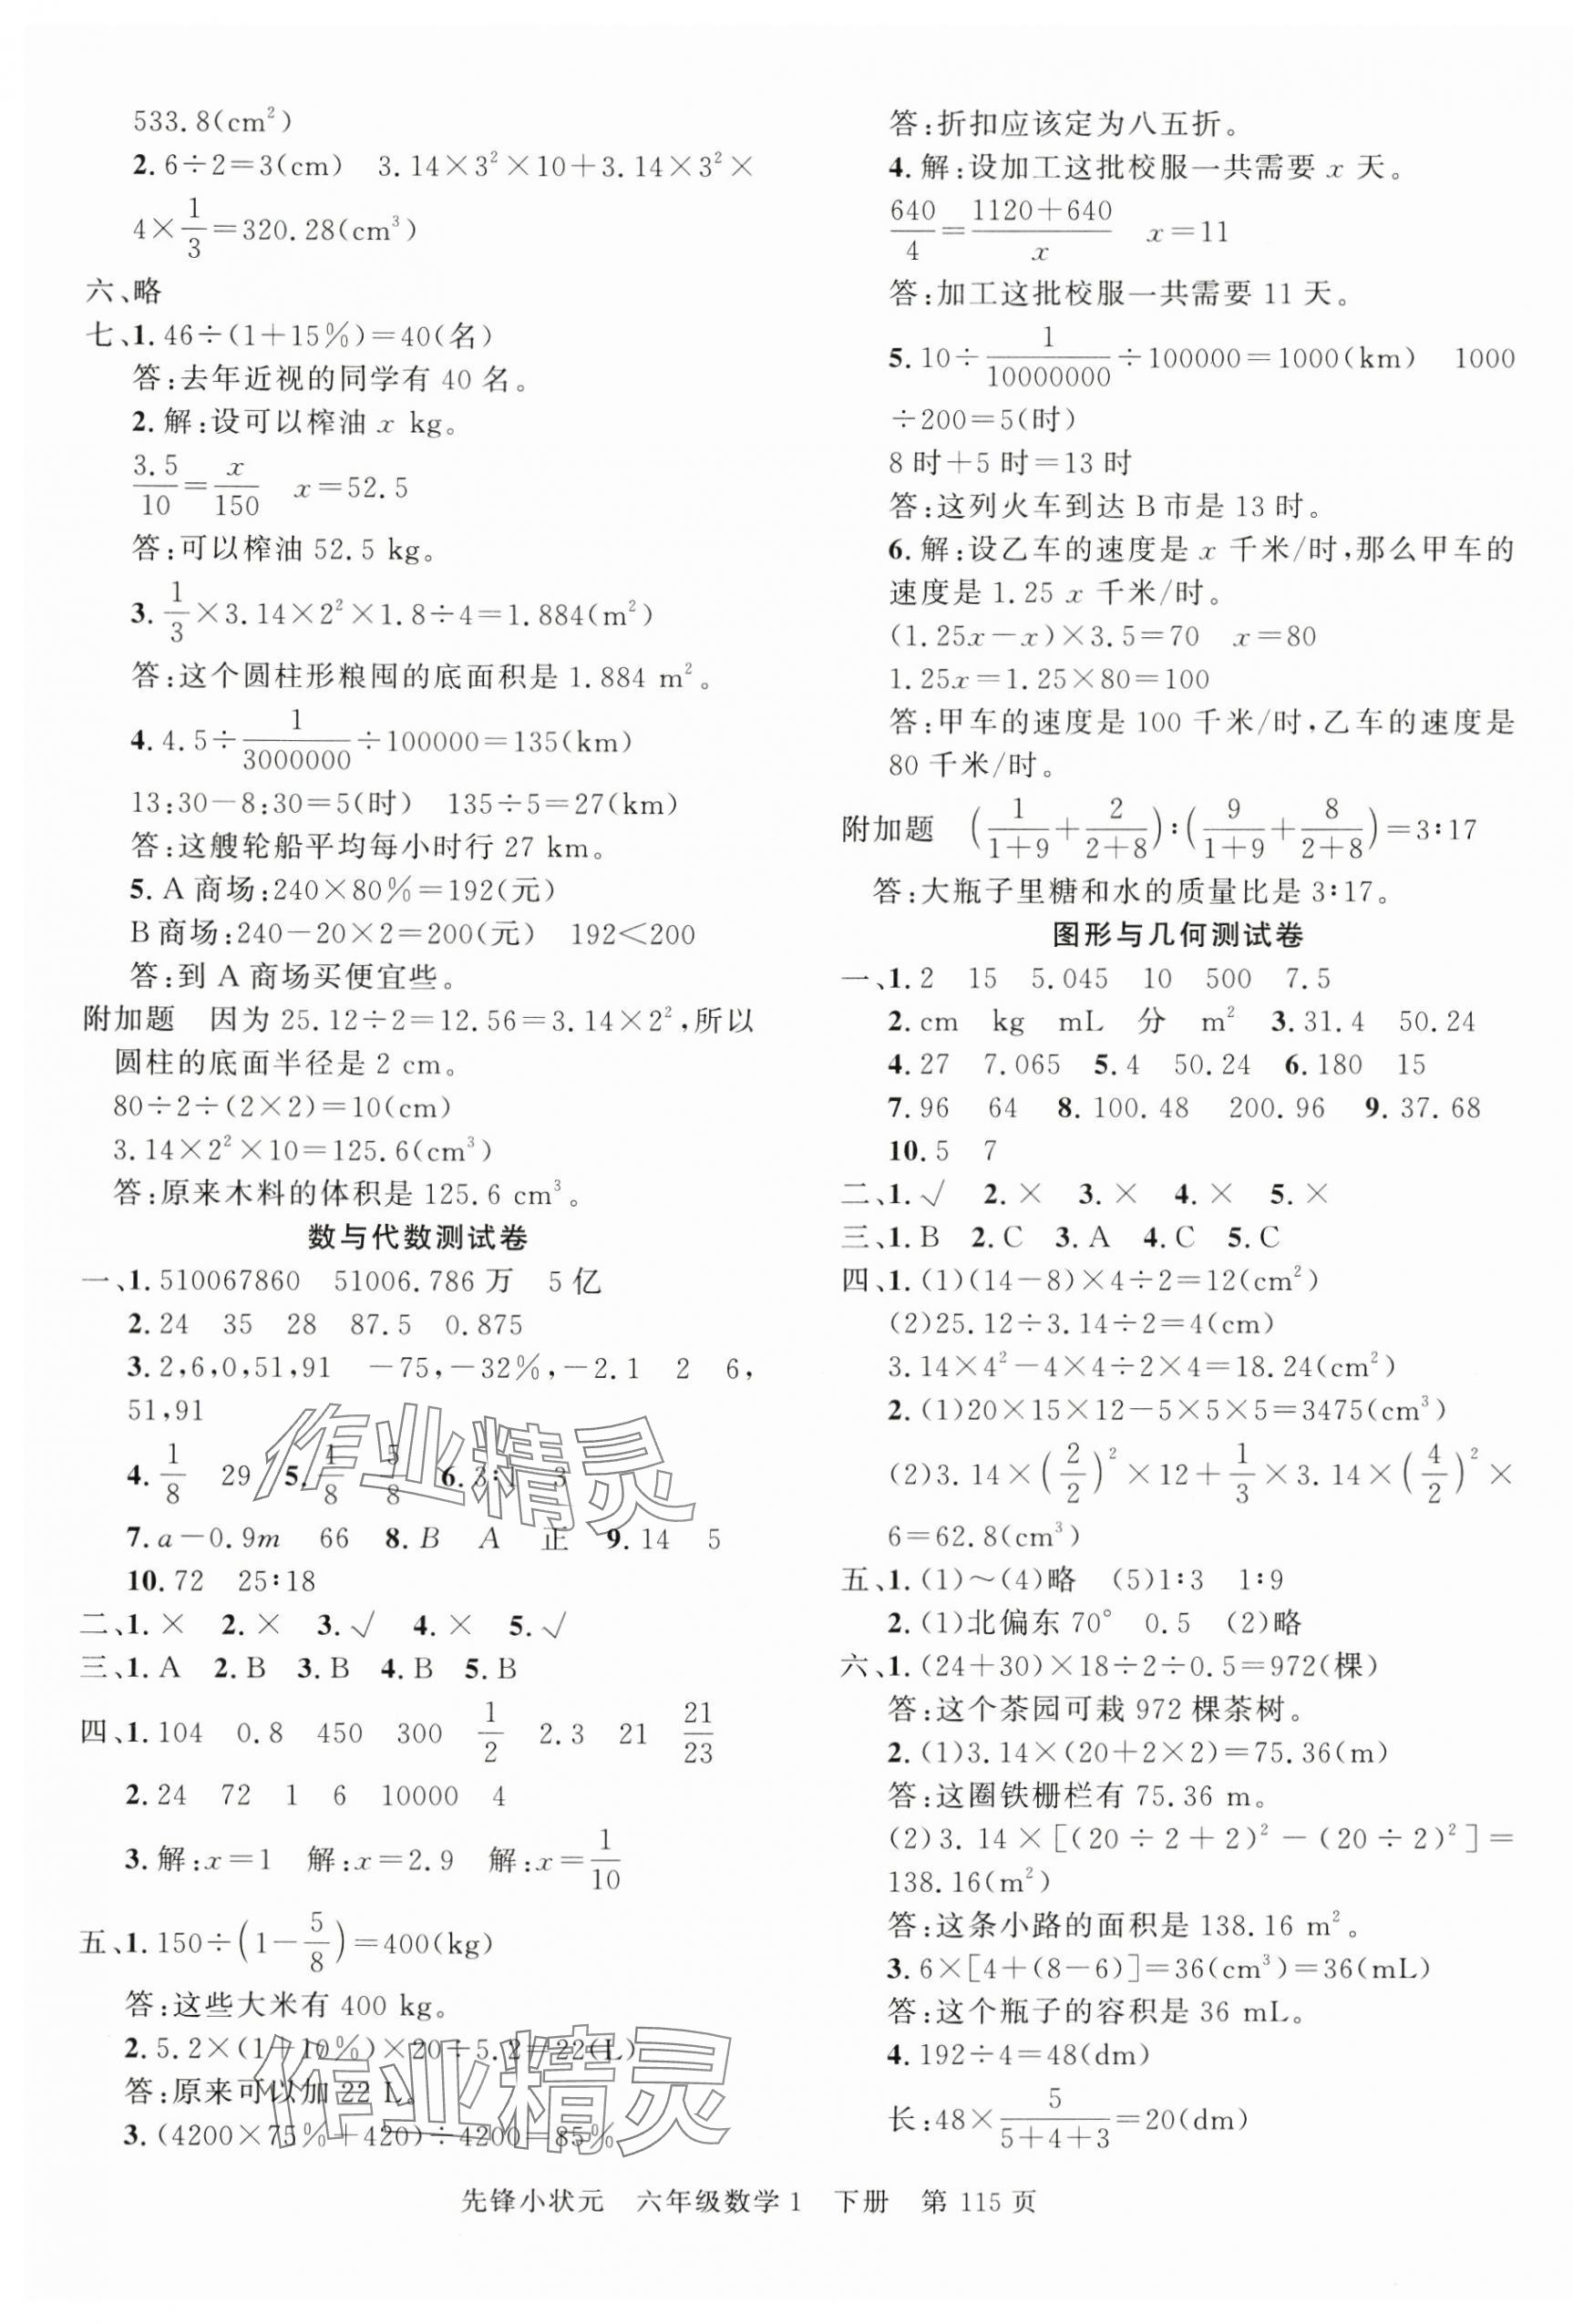 533.8(cm²)
2. 6÷2=3(cm) 3.14×3²×10+3.14×3²×
4×1/3=320.28(cm³)
六、略
七、1. 46÷(1+15%)=40(名)
答:去年近视的同学有 40 名。
2. 解:设可以榨油 x kg。
3.5/10=x/150 x=52.5
答:可以榨油 52.5 kg。
3. 1/3×3.14×2²×1.8÷4=1.884(m²)
答:这个圆柱形粮囤的底面积是 1.884 m²。
4. 4.5÷1/3000000÷100000=135(km)
13:30-8:30=5(时) 135÷5=27(km)
答:这艘轮船平均每小时行 27 km。
5. A 商场:240×80%=192(元)
B 商场:240-20×2=200(元) 192<200
答:到 A 商场买便宜些。
附加题 因为 25.12÷2=12.56=3.14×2²,所以
圆柱的底面半径是 2 cm。
80÷2÷(2×2)=10(cm)
3.14×2²×10=125.6(cm³)
答:原来木料的体积是 125.6 cm³。
数与代数测试卷
一、1. 510067860 51006.786 万 5 亿
2. 24 35 28 87.5 0.875
3. 2,6,0,51,91 -75,-32%,-2.1 2 6,
51,91
4. 1/8 29 5. 1/8 5/8 6. 3:1 3
7. a-0.9m 66 8. B A 正 9. 14 5
10. 72 25:18
二、1. × 2. × 3. √ 4. × 5. √
三、1. A 2. B 3. B 4. B 5. B
四、1. 104 0.8 450 300 1/2 2.3 21 21/23
2. 24 72 1 6 10000 4
3. 解:x=1 解:x=2.9 解:x=1/10
五、1. 150÷(1-5/8)=400(kg)
答:这些大米有 400 kg。
2. 5.2×(1+10%)×20÷5.2=22(L)
答:原来可以加 22 L。
3. (4200×75%+420)÷4200=85%
答:折扣应该定为八五折。
4. 解:设加工这批校服一共需要 x 天。
640/4=(1120+640)/x x=11
答:加工这批校服一共需要 11 天。
5. 10÷1/10000000÷100000=1000(km) 1000
÷200=5(时)
8 时+5 时=13 时
答:这列火车到达 B 市是 13 时。
6. 解:设乙车的速度是 x 千米/时,那么甲车的
速度是 1.25 x 千米/时。
(1.25x-x)×3.5=70 x=80
1.25x=1.25×80=100
答:甲车的速度是 100 千米/时,乙车的速度是
80 千米/时。
附加题 (1/(1+9)+2/(2+8)):(9/(1+9)+8/(2+8))=3:17
答:大瓶子里糖和水的质量比是 3:17。
图形与几何测试卷
一、1. 2 15 5.045 10 500 7.5
2. cm kg mL 分 m² 3. 31.4 50.24
4. 27 7.065 5. 4 50.24 6. 180 15
7. 96 64 8. 100.48 200.96 9. 37.68
10. 5 7
二、1. √ 2. × 3. × 4. × 5. ×
三、1. B 2. C 3. A 4. C 5. C
四、1. (1)(14-8)×4÷2=12(cm²)
(2)25.12÷3.14÷2=4(cm)
3.14×4²-4×4÷2×4=18.24(cm²)
2. (1)20×15×12-5×5×5=3475(cm³)
(2)3.14×(2/2)²×12+1/3×3.14×(4/2)²×
6=62.8(cm³)
五、1. (1)～(4)略 (5)1:3 1:9
2. (1)北偏东 70° 0.5 (2)略
六、1. (24+30)×18÷2÷0.5=972(棵)
答:这个茶园可栽 972 棵茶树。
2. (1)3.14×(20+2×2)=75.36(m)
答:这圈铁栅栏有 75.36 m。
(2)3.14×[(20÷2+2)²-(20÷2)²]=
138.16(m²)
答:这条小路的面积是 138.16 m²。
3. 6×[4+(8-6)]=36(cm³)=36(mL)
答:这个瓶子的容积是 36 mL。
4. 192÷4=48(dm)
长:48×5/(5+4+3)=20(dm)
先锋小状元 六年级数学1 下册 第 115 页
作业精灵
作业精灵